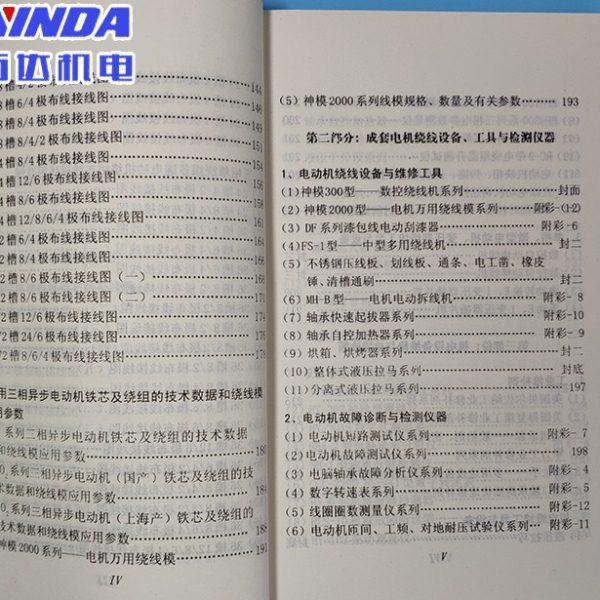 INDA
达机电
槽6/4极布线接线图
144
槽8/4极布线接线图
146
槽8/6极布线接线图
149
槽8/4/2极布线接线图
槽8/4极布线接线图
154
4槽12/6极布线接线图
156
4槽8/6极布线接线图
4槽12/8/6/4极布线接线图
161
2槽8/4极布线接线图
2槽8/6极布线接线图（一）
168
2槽8/6极布线接线图（二）
2槽12/6极布线接线图
72槽24/6极布线接线图
72槽8/6/4极布线接线图
178
用三相异步电动机铁芯及绕组的技术数据和绕线模
用参数
系列三相异步电动机铁芯及绕组的技术数据
和绕线模应用参数
180
系列三相异步电动机（国产）铁芯及绕组的技
术数据和绕线模应用参数
系列三相异步电动机（上海产）铁芯及绕组的
技术数据和绕线模应用参数
188
神模2000系列——电机万用绕线模
191
IV
（5）神模2000系列线模规格、数量及有关参数 ……… 193
第二部分：成套电机绕线设备、工具与检测仪器
1、电动机绕线设备与维修工具
（1）神模300型——数控绕线机系列 ……… 封面
（2）神模2000型——电机万用绕线模系列 …… 附彩-(1-2)
（3）DF系列漆包线电动刮漆器 ……… 附彩-6
（4）FS-1型——中型多用绕线机 ……… 封二
（5）不锈钢压线板、划线板、通条、电工凿、橡皮
锤、清槽通刷 ……… 封二
（6）MH-B型——电机电动拆线机 ……… 附彩-8
（7）轴承快速起拔器系列 ……… 附彩-10
（8）轴承自控加热器系列 ……… 附彩-9
（9）烘箱、烘烤器系列 ……… 封二
（10）整体式液压拉马系列 ……… 封底
（11）分离式液压拉马系列 ……… 197
2、电动机故障诊断与检测仪器
（1）电动机短路测试仪系列 ……… 附彩-7
（2）电动机故障测试仪系列 ……… 198
（3）电脑轴承故障分析仪系列 ……… 附彩-4
（4）数字转速表系列 ……… 附彩-5
（5）线圈圈数测量仪系列 ……… 附彩-12
（6）电动机匝间、工频、对地耐压试验仪系列 … 附彩-11
V